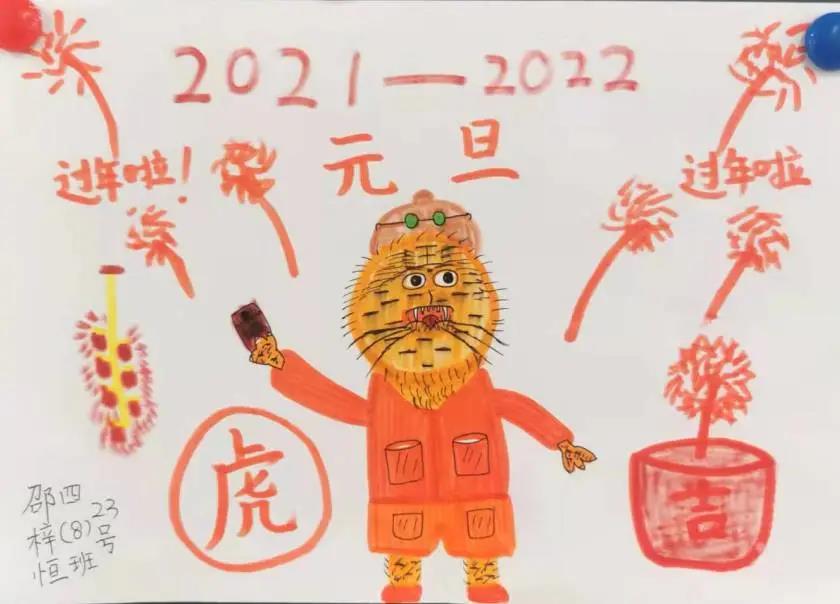 2021—2022
元旦
过年啦！
过年啦
虎
吉
邵梓恒
四(8)班
23号